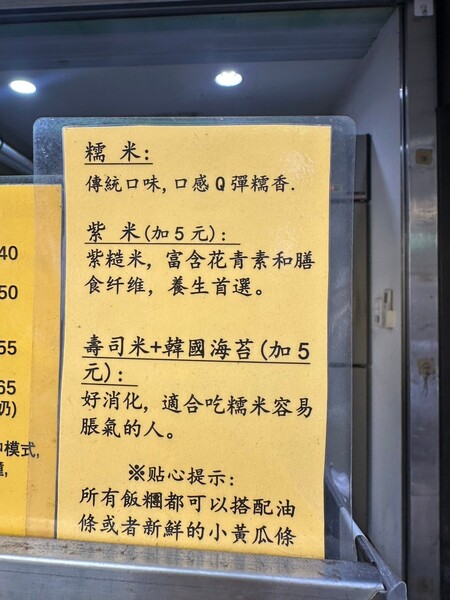 糯 米:
傳統口味, 口感 Q 彈糯香.
紫 米(加 5 元):
紫糙米, 富含花青素和膳
食纤维, 養生首選。
壽司米+韓國海苔(加 5
元):
好消化, 適合吃糯米容易
脹氣的人。
※贴心提示:
所有飯糰都可以搭配油
條或者新鮮的小黃瓜條
40
50
55
65
奶)
模式,